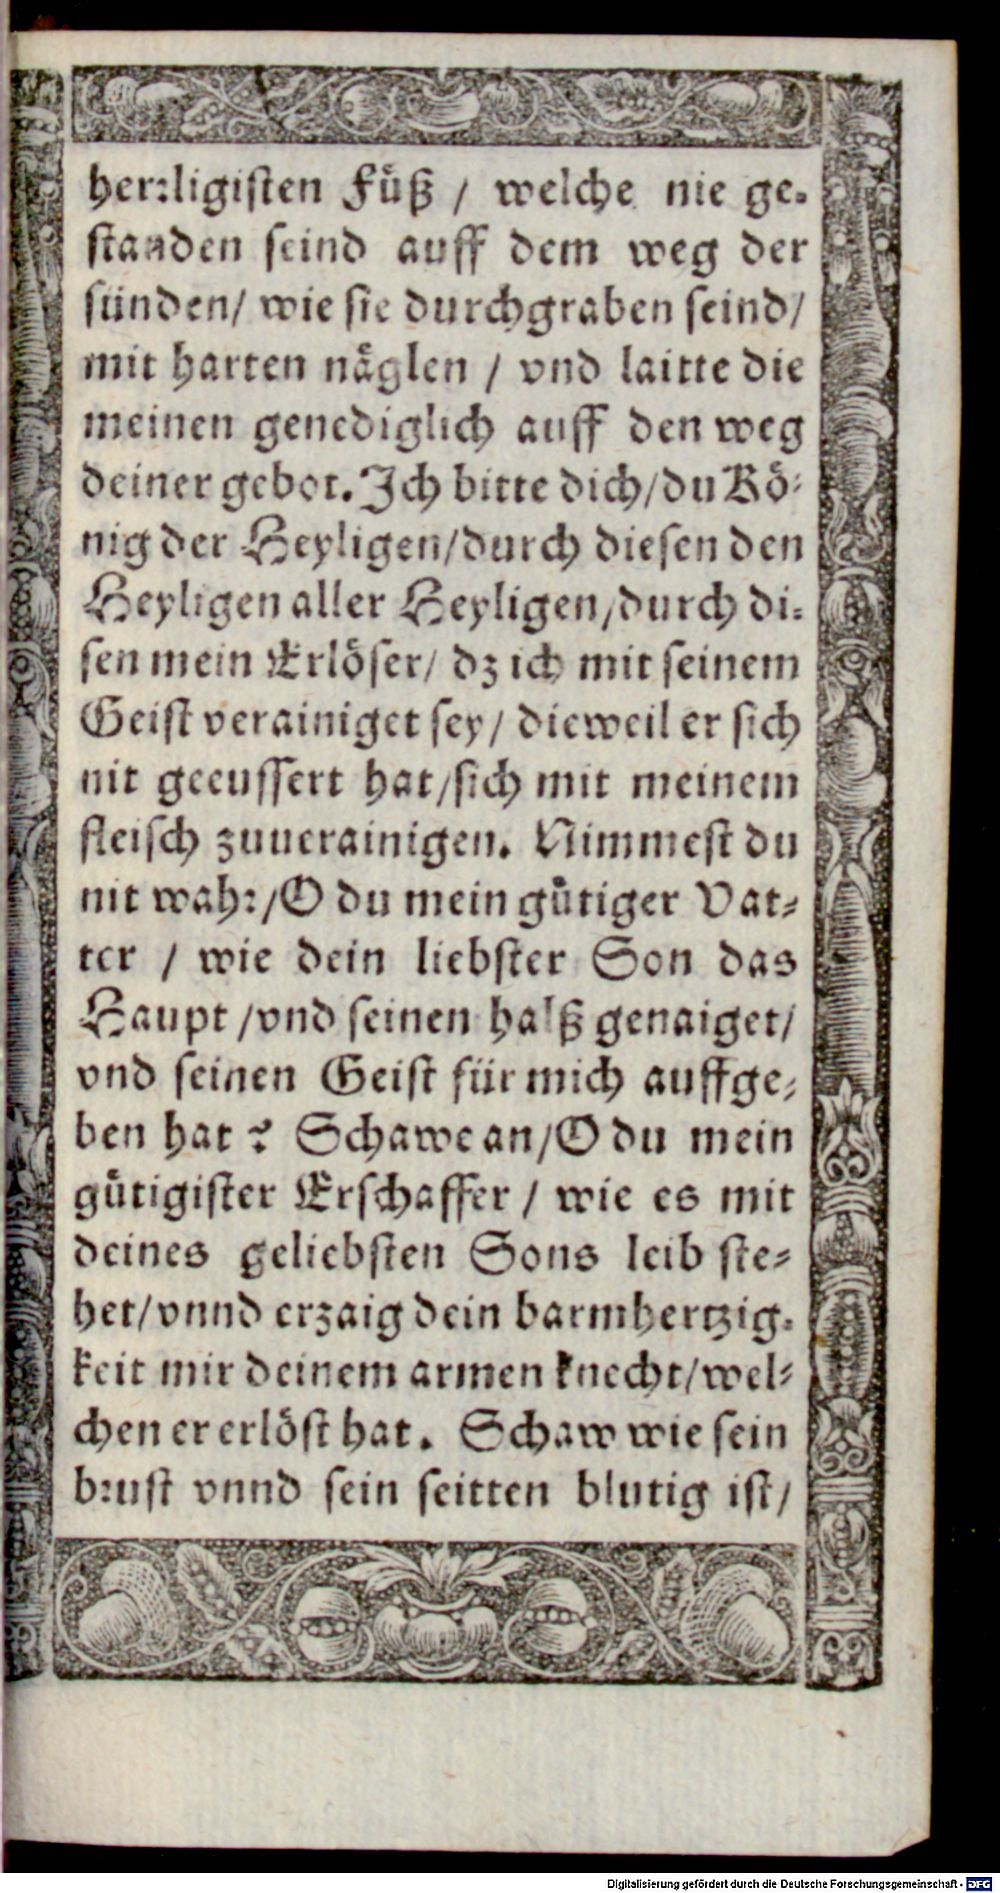 herꝛligisten Fuͤß / welche nie ge-
standen seind auff dem weg der
sünden/ wie sie durchgraben seind/
mit harten naͤglen / vnd laitte die
meinen genediglich auff den weg
deiner gebot. Ich bitte dich/du Koͤ-
nig der Heyligen/durch diesen den
Heyligen aller Heyligen/durch di-
sen mein Erloͤser/ dz ich mit seinem
Geist verainiget sey/ dieweil er sich
nit geeussert hat/sich mit meinem
fleisch zuuerainigen. Nimmest du
nit wahꝛ/O du mein guͤtiger Vat-
ter / wie dein liebster Son das
Haupt /vnd seinen halß genaiget/
vnd seinen Geist für mich auffge-
ben hat? Schawe an/O du mein
guͤtigister Erschaffer / wie es mit
deines geliebsten Sons leib ste-
het/vnnd erzaig dein barmhertzig-
keit mir deinem armen knecht/wel-
chen er erloͤst hat. Schaw wie sein
bꝛust vnnd sein seitten blutig ist/
Digitalisierung gefördert durch die Deutsche Forschungsgemeinschaft - DFG